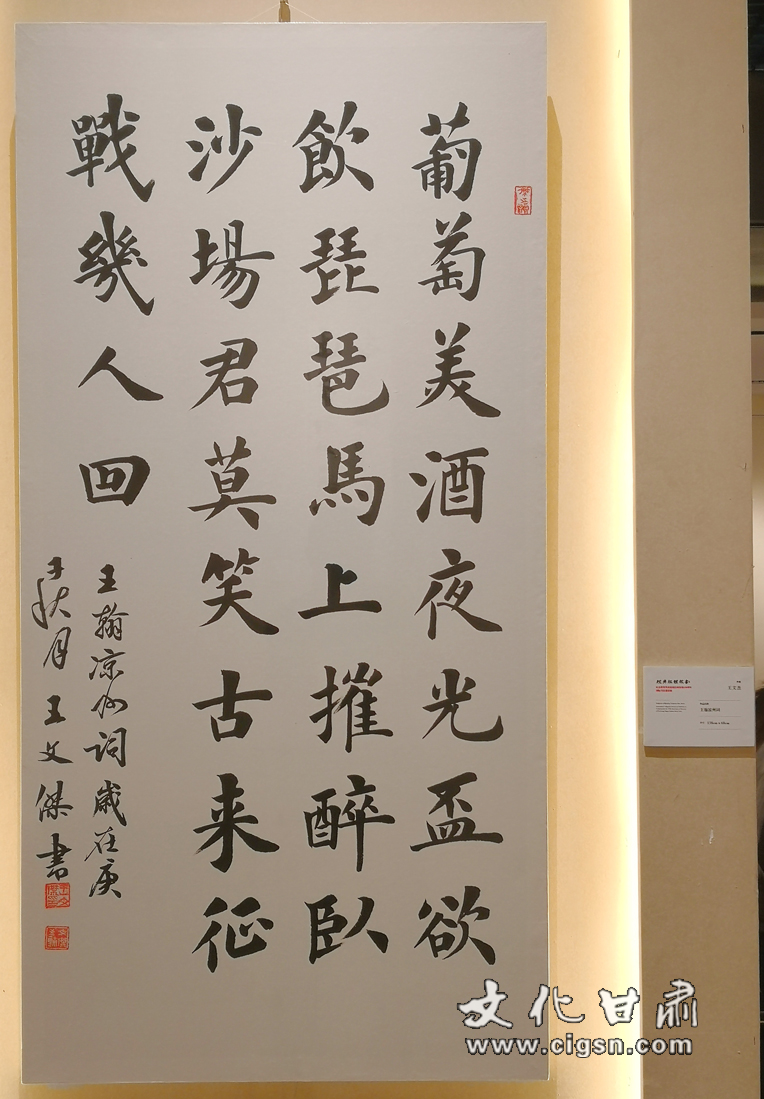 葡萄美酒夜光盃欲
飲琵琶馬上摧醉臥
沙場君莫笑古来征
戰幾人回
王翰凉州词歲在庚
子秋月王文傑書
王文杰
王翰凉州词
文化甘肃
www.cigsn.com